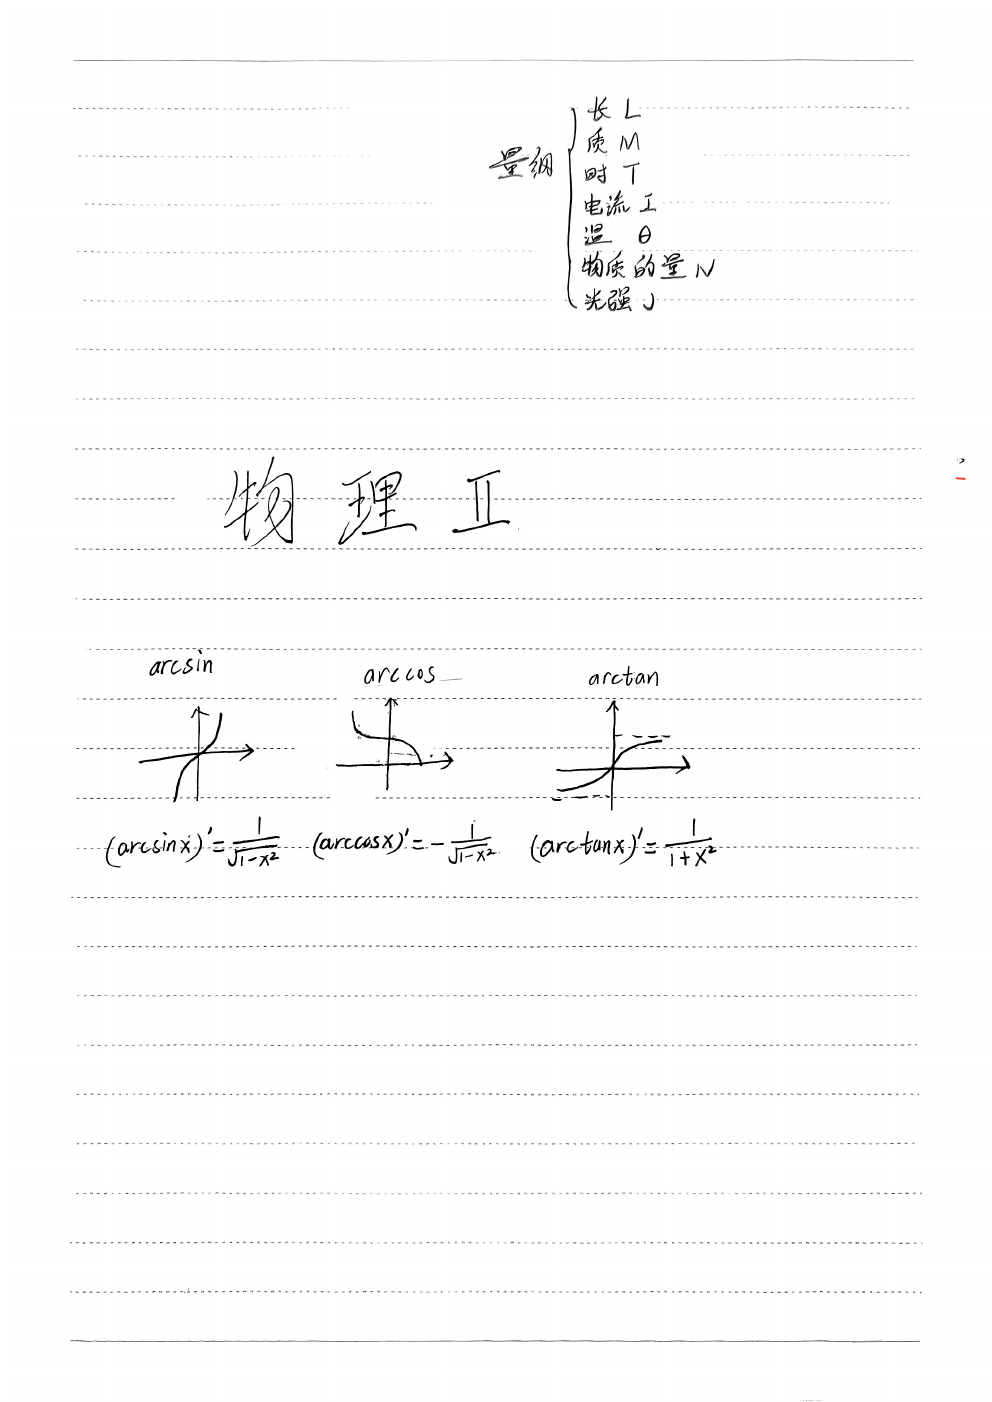 长 L
质 M
量纲
时 T
电流 I
温 θ
物质的量 N
光强 J
物理 II
arcsin arccos arctan
(arcsinx)' = 1/√(1-x²) (arccosx)' = -1/√(1-x²) (arctanx)' = 1/(1+x²)